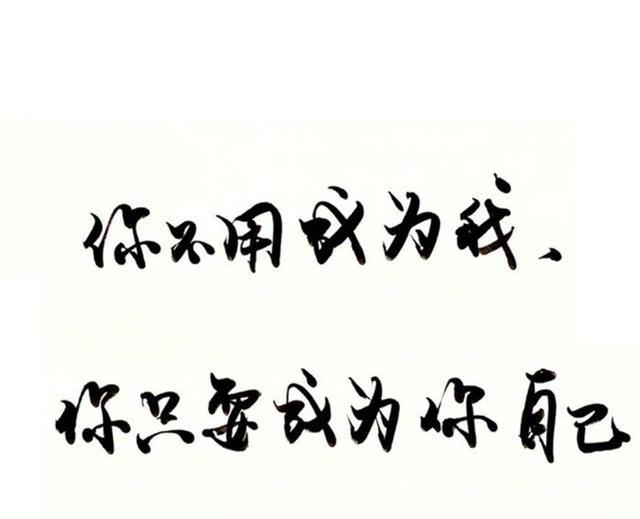 你不用成为我、
你只要成为你自己